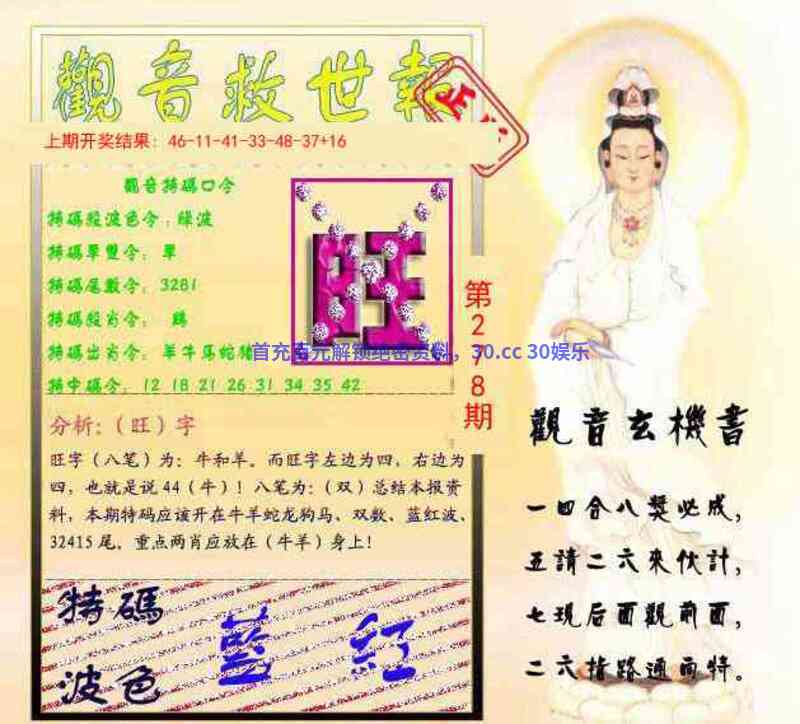 觀音救世報
上期开奖结果：46-11-41-33-48-37+16
觀音特碼口令
特碼殺波色令：綠波
特碼單雙令：單
特碼尾數令：3281
特碼殺肖令：鷄
特碼出肖令：羊牛馬蛇豬
特中碼令：12 18 21 26 31 34 35 42
旺
首充百元解锁绝密资料，30.cc 30娱乐
第278期
分析：（旺）字
旺字（八笔）为：牛和羊。而旺字左边为四，右边为
四，也就是说44（牛）！八笔为：（双）总结本报资
料，本期特码应该开在牛羊蛇龙狗马、双数、蓝红波、
32415尾，重点两肖应放在（牛羊）身上！
特碼
波色
藍 紅
觀音玄機書
一四合八獎必成，
五請二六來伙計，
七現后面觀前面，
二六指路通而特。